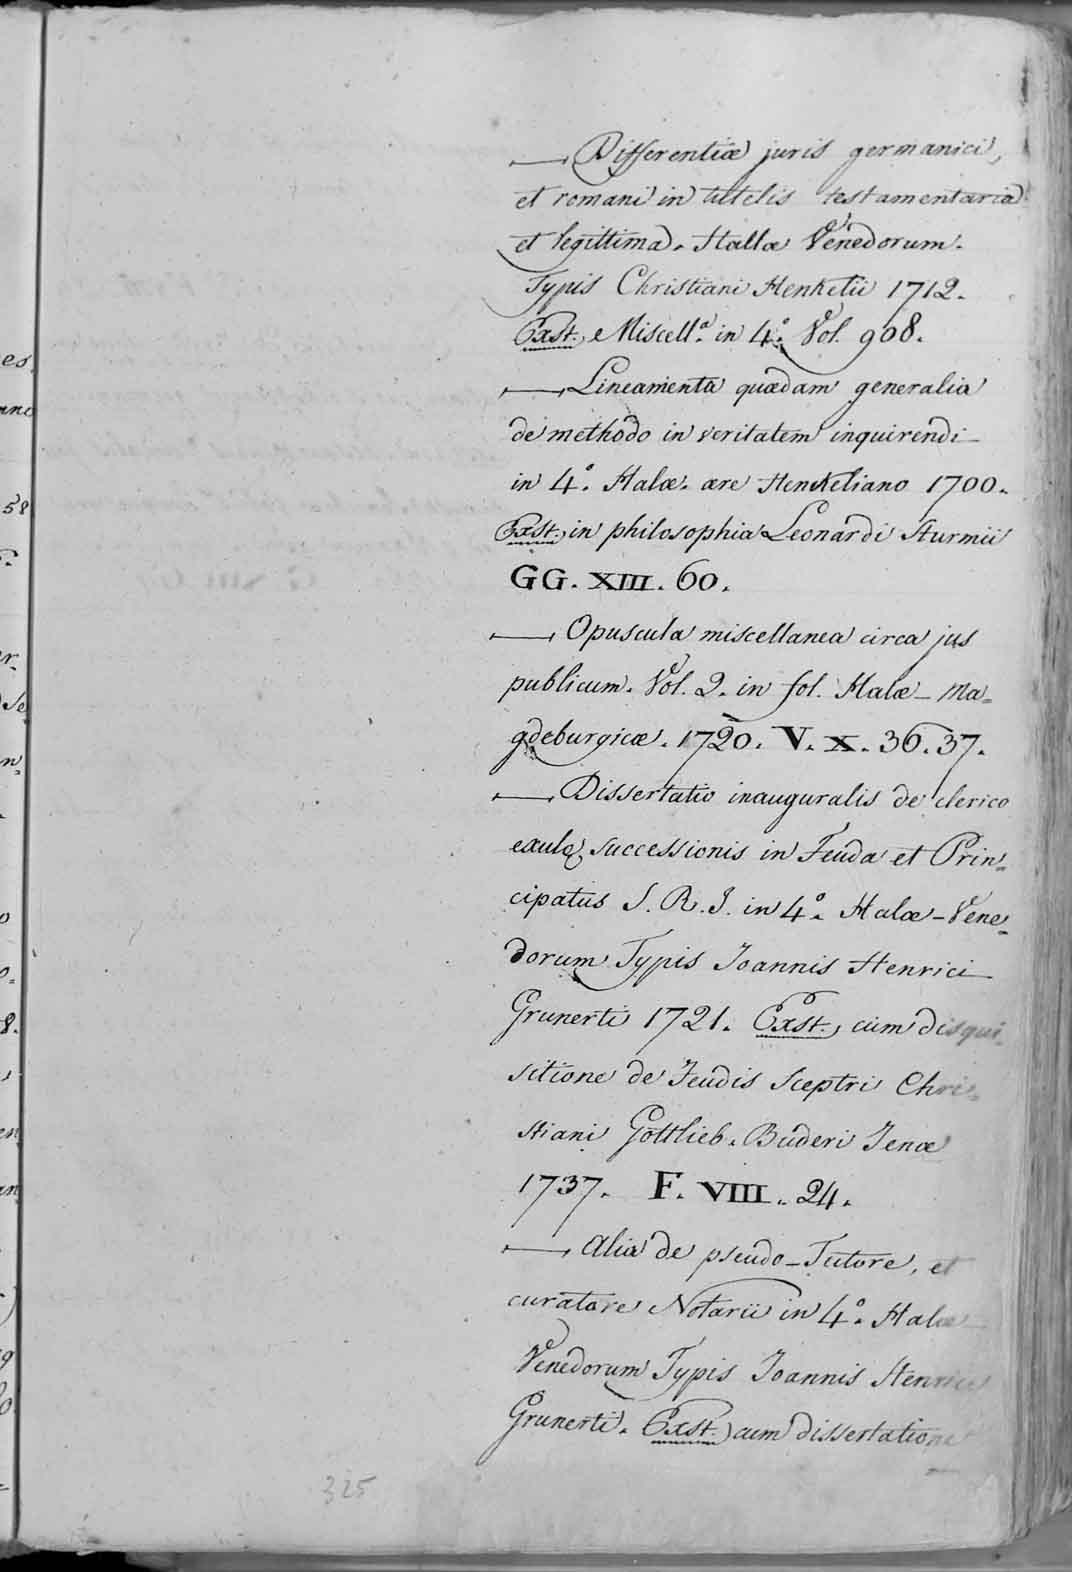 — Differentiæ juris germanici,
et romani in tutelis testamentaria
et legittima. Hallæ Venedorum.
Typis Christiani Henkelii 1712.
Exst. Miscell.ª in 4.º Vol. 908.
— Lineamenta quædam generalia
de methodo in veritatem inquirendi
in 4.º Halæ. ære Henckeliano 1700.
Exst. in philosophia Leonardi Sturmii
GG. XIII. 60.
— Opuscula miscellanea circa jus
publicum. Vol. 2. in fol. Halæ - Ma=
gdeburgicæ. 1720. V. X. 36. 37.
— Dissertatio inauguralis de clerico
exule successionis in Feuda et Prin=
cipatus S. R. I. in 4.º Halæ - Vene=
dorum Typis Joannis Henrici
Grunerti 1721. Exst. cum disqui=
sitione de Feudis Sceptri Chri=
stiani Gottlieb. Buderi Jenæ
1737. F. VIII. 24.
— Alia de pseudo - Tutore, et
curatore Notarii in 4.º Halæ
Venedorum Typis Joannis Henrici
Grunerti. Exst. cum dissertatione
325
es
58
n=
8.
en